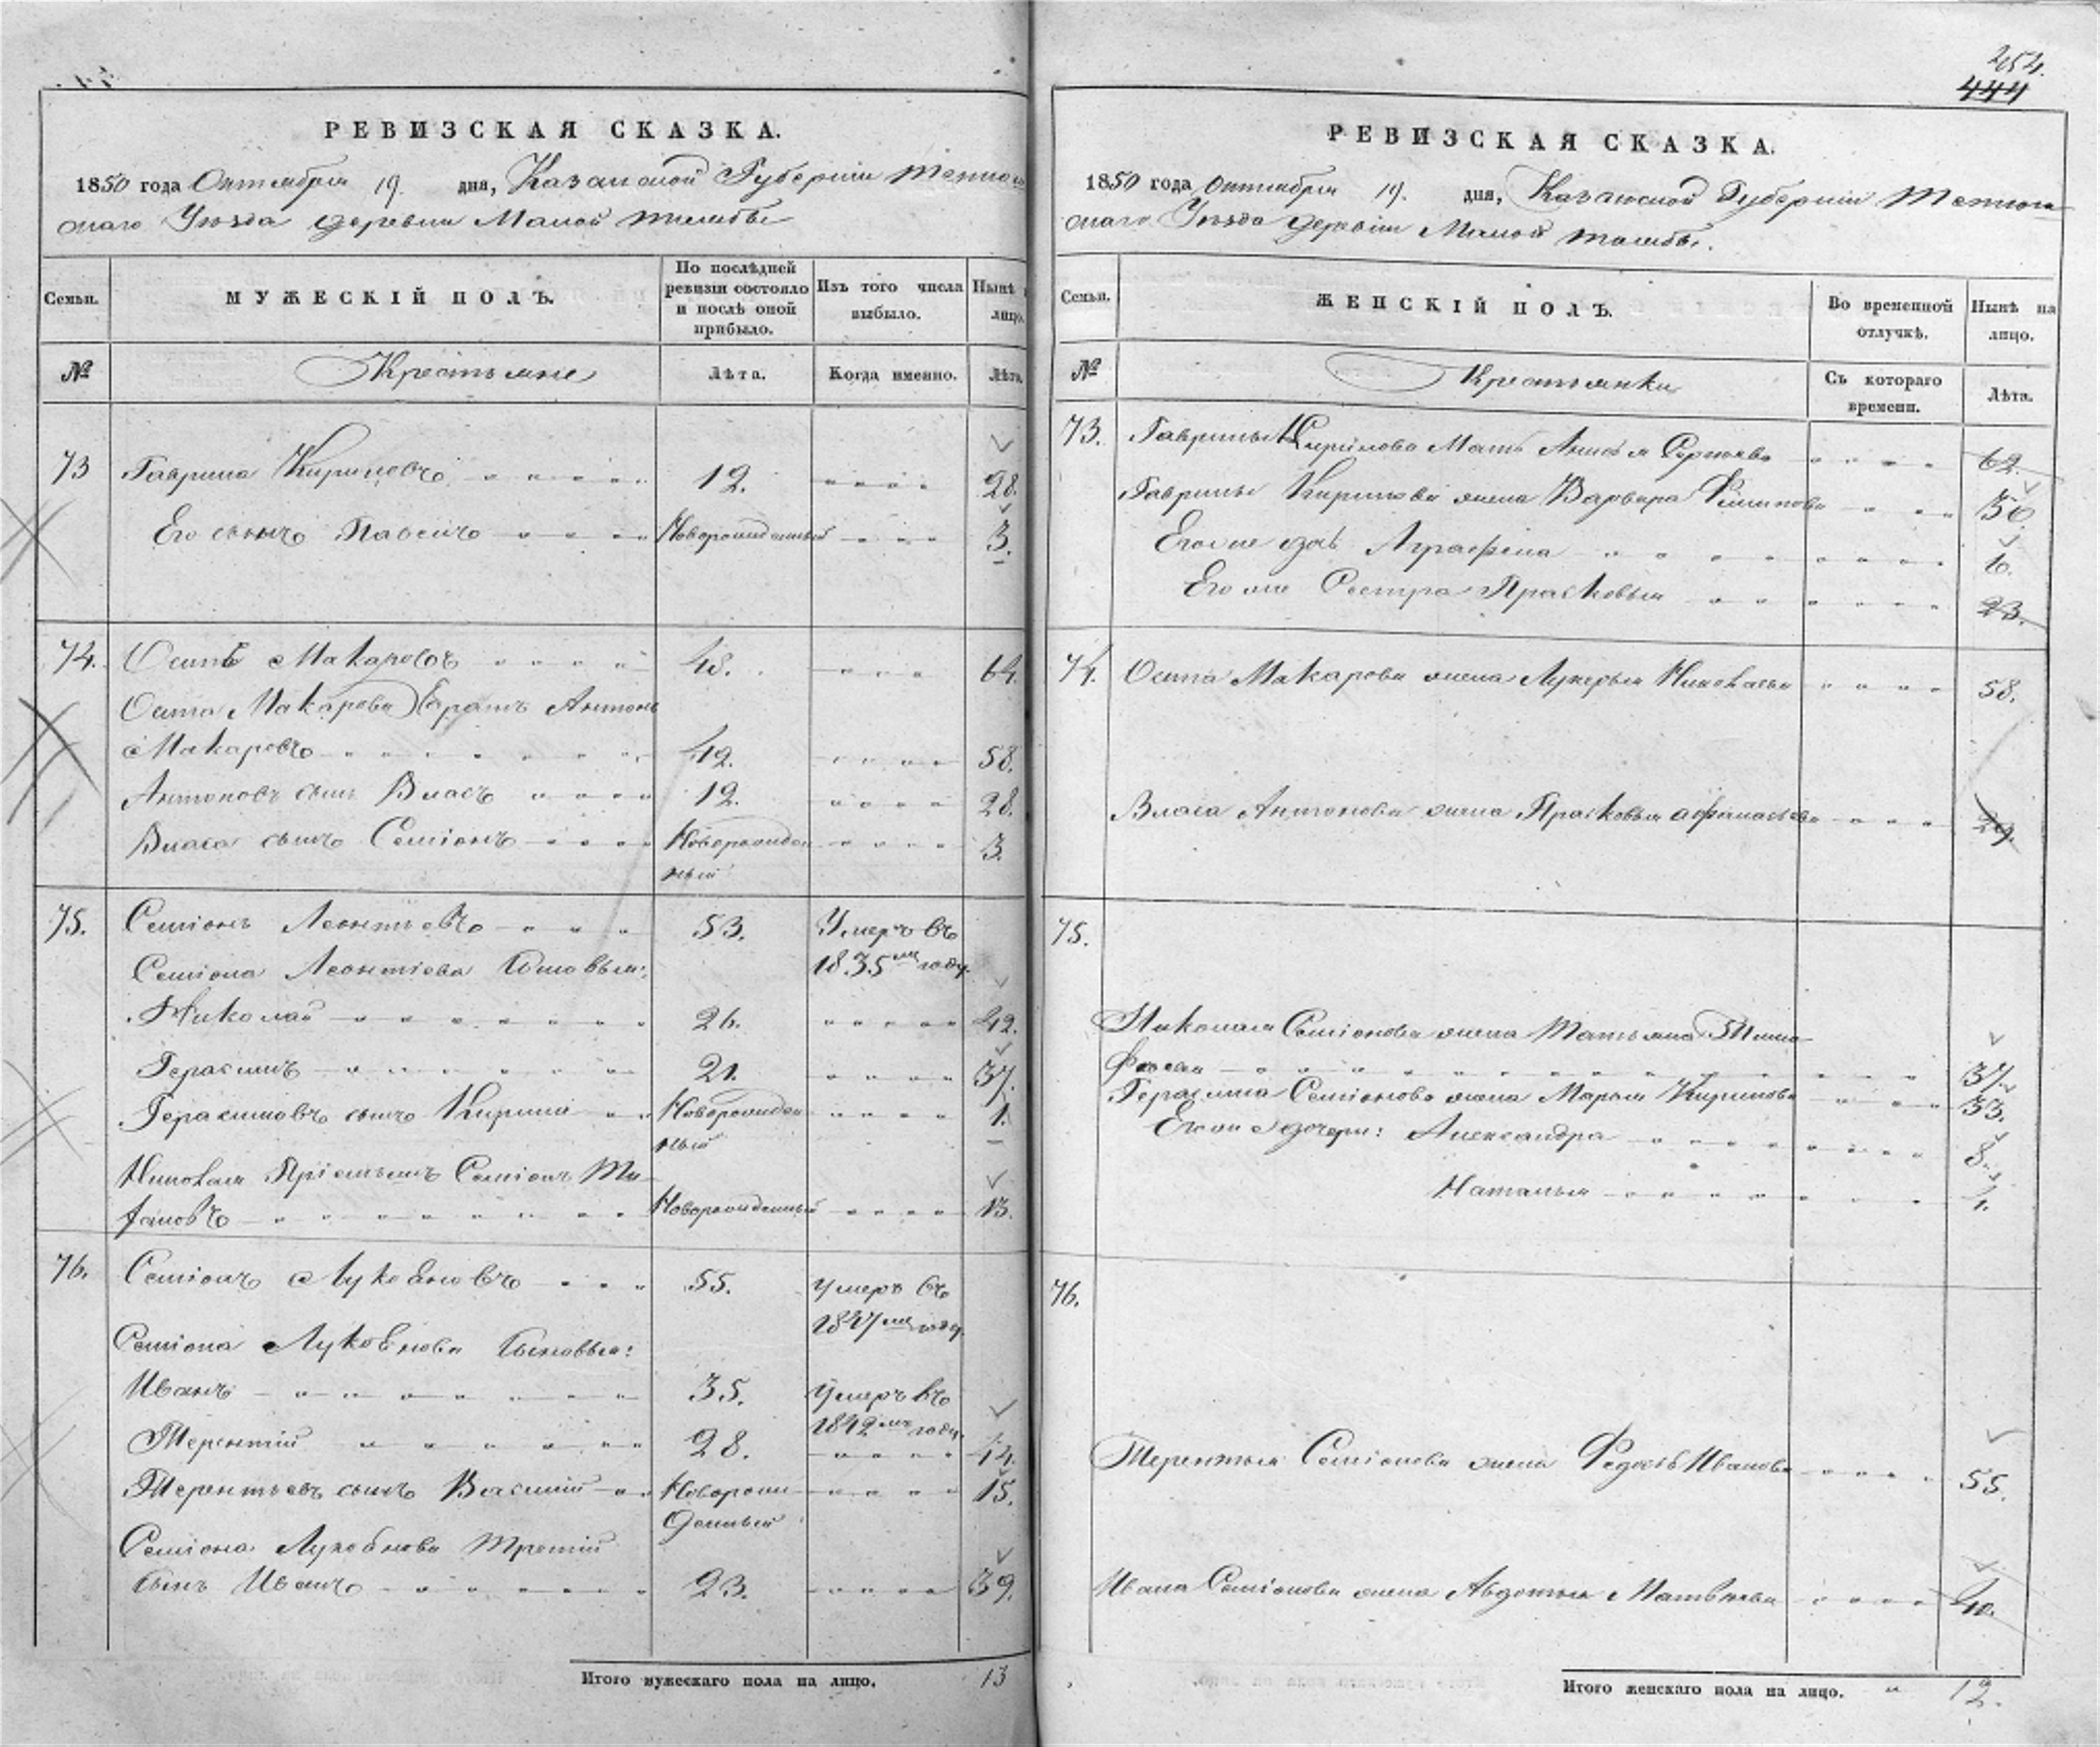 РЕВИЗСКАЯ СКАЗКА.
1850 года Октября 19. дня, Казанской Губерніи Тетюш
скаго Уѣзда деревни Малой
Семьи. МУЖЕСКІЙ ПОЛЪ. По послѣдней ревизіи состояло и послѣ оной прибыло. Изъ того числа выбыло. Нынѣ лицо.
№ Крестьяне Лѣта. Когда именно. Лѣта.
73 Гаврила Кириловъ 12. 28.
Его сынъ Павелъ Новорожденный 3.
74. Осипъ Макаровъ 48. 64.
Осипа Макарова Братъ Антонъ
Макаровъ 42. 58.
Антоновъ сынъ Власъ 12. 28.
Власа сынъ Семіонъ Новорожден 3.
ный
75. Семіонъ Леонтьевъ 53. Умеръ въ
Семіона Леонтіева Сыновья: 1835мъ году.
Николай 26. 42.
Герасимъ 21. 37.
Герасимовъ сынъ Кирила Новорожден 1.
ный
Николая Пріемышъ Семіонъ
Новорожденный 13.
76. Семіонъ Лукояновъ 55. умеръ въ
1847мъ году.
Семіона Лукоянова Сыновья:
Иванъ 35. Умеръ въ
1842мъ году.
Терентій 28. 44.
Терентьевъ сынъ Василій Новорож 15.
денный
Семіона Лукоянова третій
сынъ Иванъ 23. 39.
Итого мужескаго пола на лицо. 13
254.
444
РЕВИЗСКАЯ СКАЗКА.
1850 года Октября 19. дня, Казанской Губерніи Тетюш
скаго Уѣзда деревни Малой
Семьи. ЖЕНСКІЙ ПОЛЪ. Во временной отлучкѣ. Нынѣ на лицо.
№ Крестьянки Съ котораго времени. Лѣта.
73. Гаврилы Кирилова Мать Анисья Сергѣева 62.
Гаврилы Кирилова жена Варвара Филипова 30.
Его же дочь Аграфена 6.
Его же Сестра Прасковья 23.
74. Осипа Макарова жена Лукерья Николаева 58.
Власа Антонова жена Прасковья Афанасьева 29.
75.
Николая Семіонова жена Татьяна Тимо
фѣева 37.
Герасима Семіонова жена Марья Кирилова 33.
Его же дочери: Александра 8.
Наталья 1.
76.
Терентья Семіонова жена Федосья Иванова 55.
Ивана Семіонова жена Авдотья Матвѣева 40.
Итого женскаго пола на лицо. 12.